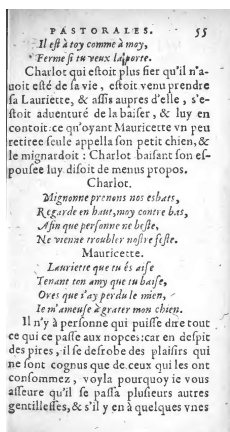 PASTORALES. 55
Il est à toy comme à moy,
Ferme si tu veux la porte.
Charlot qui estoit plus fier qu'il n'a-
uoit esté de sa vie, estoit venu prendre
sa Lauriette, & assis aupres d'elle, s'e-
stoit aduenturé de la baiser, & luy en
contoit: ce qu'oyant Mauricette vn peu
retiree seule appella son petit chien, &
le mignardoit: Charlot baisant son es-
pousee luy disoit de menus propos.
Charlot.
Mignonne prenons nos esbats,
Regarde en haut, moy contre bas,
Afin que personne ne beste,
Ne vienne troubler nostre feste.
Mauricette.
Lauriette que tu és aise
Tenant ton amy que tu baise,
Ores que i'ay perdu le mien,
Ie m'ameuse à grater mon chien.
Il n'y à personne qui puisse dire tout
ce qui ce passe aux nopces: car en despit
des pires, il se desrobe des plaisirs qui
ne sont cognus que de ceux qui les ont
consommez, voyla pourquoy ie vous
asseure qu'il se passa plusieurs autres
gentillesses, & s'il y en à quelques vnes